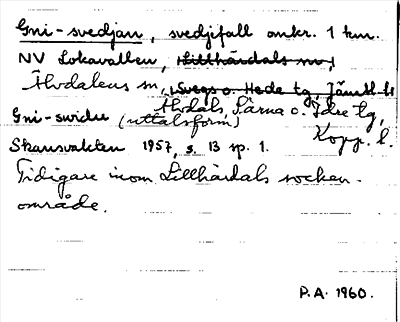 Gni-svedjan, svedjefall omkr. 1 km.
NV Lokavallen, Lillhärdals sn,
Älvdalens sn, Svegs o. Hede tg, Jämtl. l.
Älvdals, Särna o. Idre tg,
Gni-swidu (uttalsform) Kopp. l.
Skansvakten 1957, s. 13 sp. 1.
Tidigare inom Lillhärdals socken-
område.
P.A. 1960.